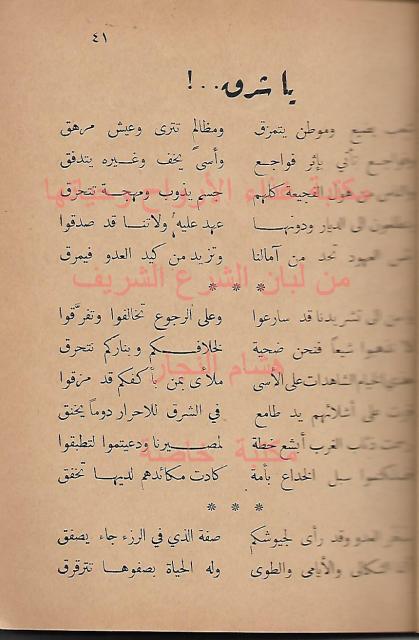 ٤١
يا شرق..!
يضيع وموطن يتمزق ومظالم تترى وعيش مرهق
تأتي بإثر فواجع وأسىً يخف وغيره يتدفق
هول الفجيعة كلهم جسم يذوب ومهجة تتحرق
الى الديار ودونها عهد عليه ولاتنا قد صدقوا
العهود تحد من آمالنا وتزيد من كيد العدو فيمرق
* * *
الى تشريدنا قد سارعوا وعلى الرجوع تخالفوا وتفرقوا
شيعاً فنحن ضحية لخلافكم وبناركم نتحرق
الشاهدات على الأسى ملأى بمن بأكفكم قد مزقوا
على أشلائهم يد طامع في الشرق للاحرار دوماً يخنق
الغرب أبشع خطة لمصيرنا ودعيتموا لتطبقوا
سبل الخداع بأمة كادت مكائدهم لديها تخفق
* * *
العدو وقد رأى لجيوشكم صفة الذي في الرزء جاء يصفق
والأيامى والطوى وله الحياة بصفوها تترقرق
من لبان الشرع الشريف
هشام النجار
مكتبة خاصة